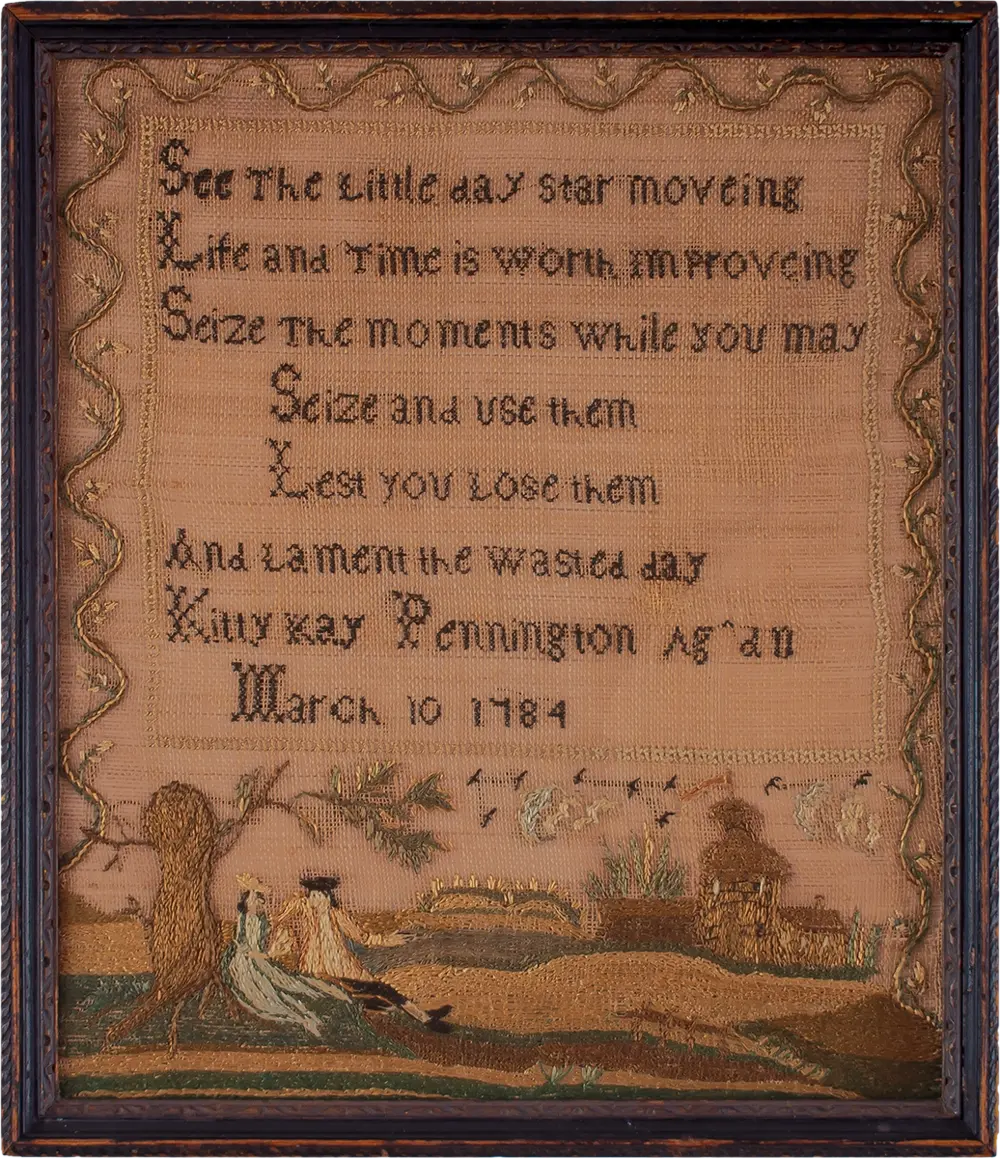 See The Little day star moveing
Life and Time is worth Improveing
Seize The moments while you may
Seize and use them
Lest you Lose them
And Lament the wasted day
Kitty Kay Pennington
March 10 1784